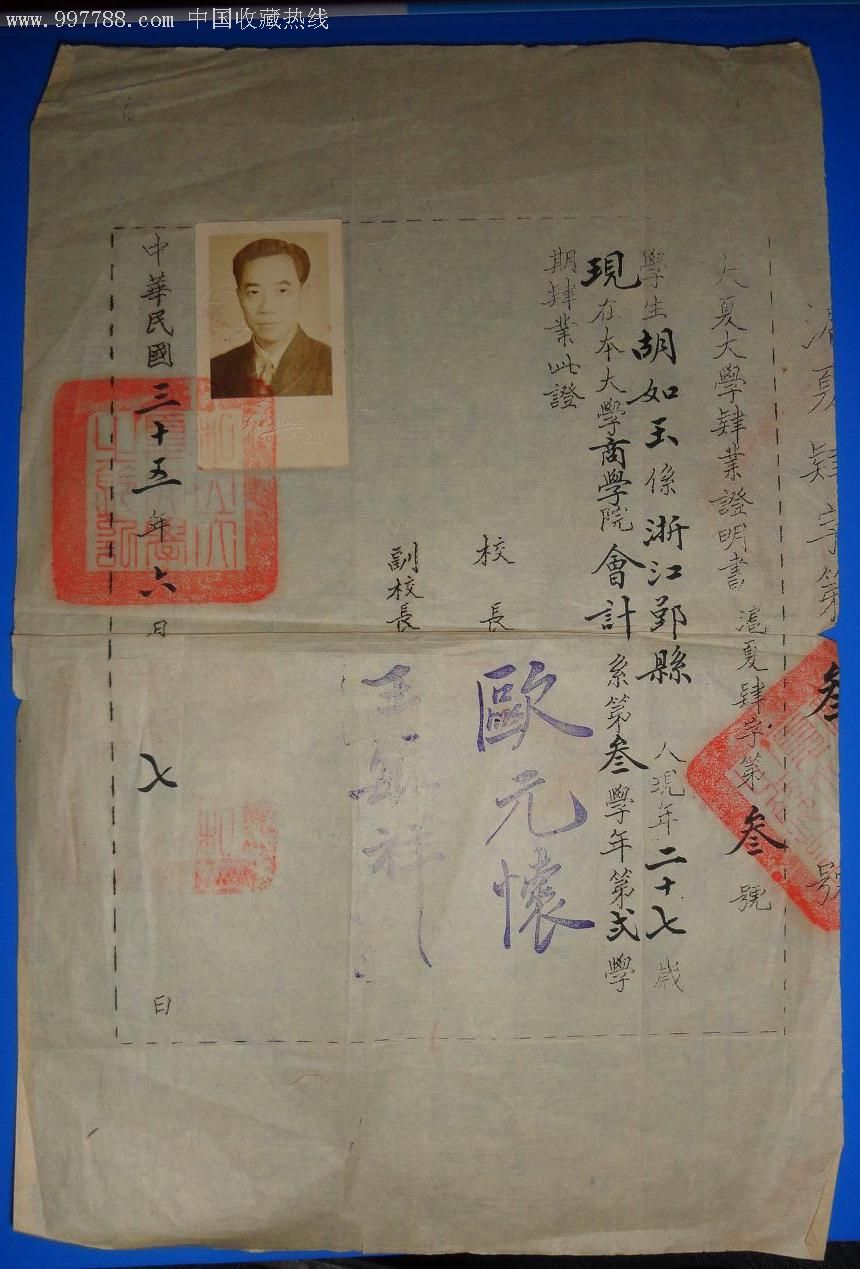 www.997788.com 中国收藏热线
滬夏肄字第叁號
大夏大學肄業證明書 滬夏肄字第叁號
學生胡如玉係浙江鄞縣人現年二十七歲
現在本大學商學院會計系第叁學年第弍學
期肄業此證
校長 歐元懷
副校長 王毓祥
中華民國三十五年六月七日